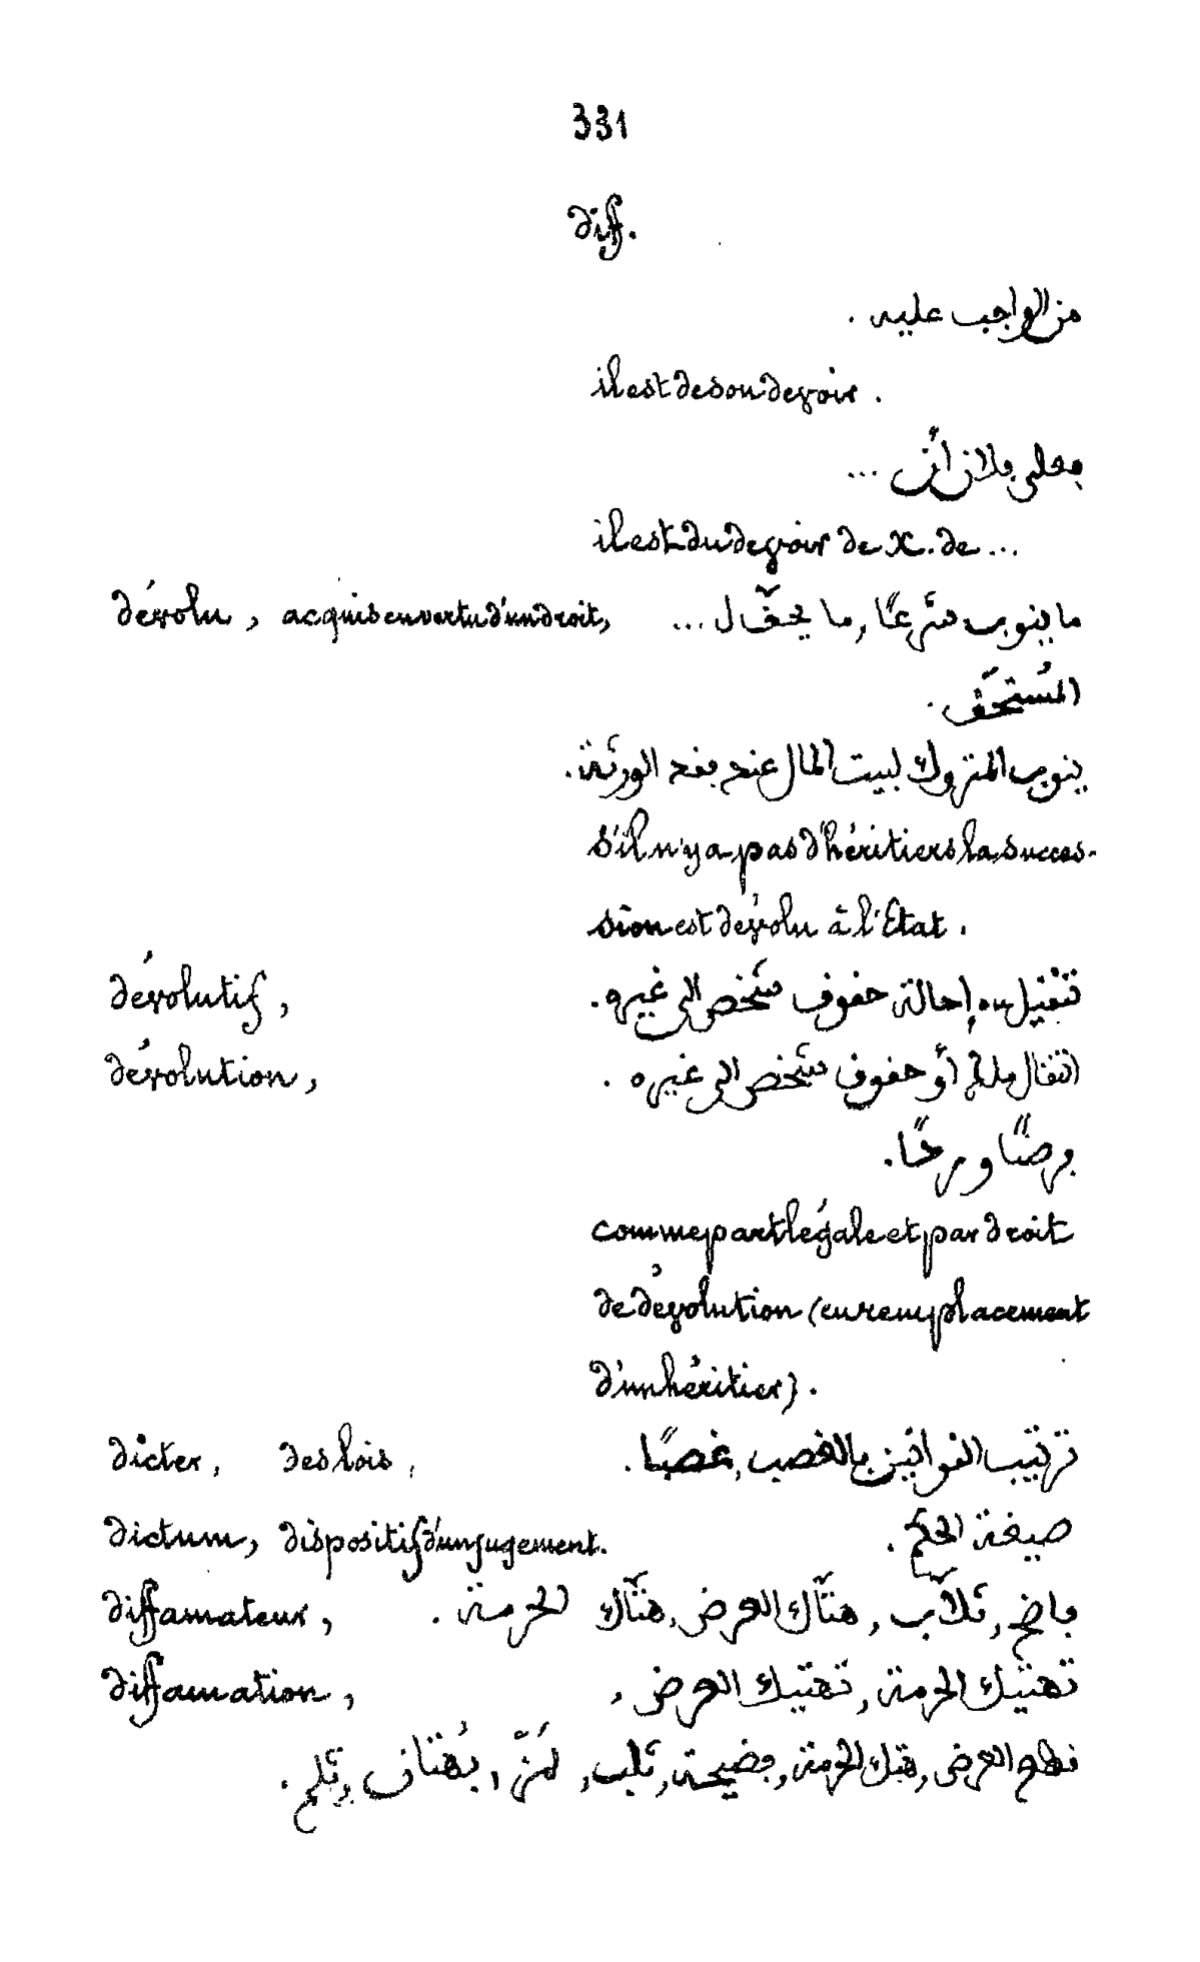 331
diff.
من الواجب عليه .
il est de son devoir .
فعلى فلان أن ...
il est du devoir de X. de ...
dévolu , acquis en vertu d'un droit, ما ينوب شرعًا, ما يحقّ ل ...
المُستحَقّ .
ينوب المتروك لبيت المال عند فقد الورثة .
s'il n'y a pas d'héritiers la succes-
sion est dévolu à l'Etat .
dévolutif , تنقيل ــ, إحالة حقوق شخص الى غيره .
dévolution , انتقال ملك أو حقوق شخص الى غيره .
فرضًا و ردًّا .
comme part légale et par droit
de dévolution (en remplacement
d'un héritier) .
dicter , des lois , ترتيب القوانين بالغصب, غصبًا .
dictum , dispositif d'un jugement . صيغة الحكم .
diffamateur , فاضح, ثلاّب, هتّاك العرض, هتّاك الحرمة .
diffamation , تهتيك الحرمة, تهتيك العرض ,
قطع العرض, هتك الحرمة, فضيحة, ثلب, لمز, بُهتان, ثلم .